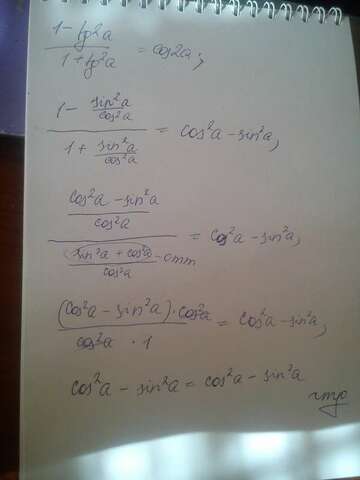 1 - tg²a
1 + tg²a = cos2a;
1 - sin²a/cos²a
1 + sin²a/cos²a = cos²a - sin²a,
cos²a - sin²a
cos²a
sin²a + cos²a - отт = cos²a - sin²a,
cos²a
(cos²a - sin²a) · cos²a
cos²a · 1 = cos²a - sin²a,
cos²a - sin²a = cos²a - sin²a